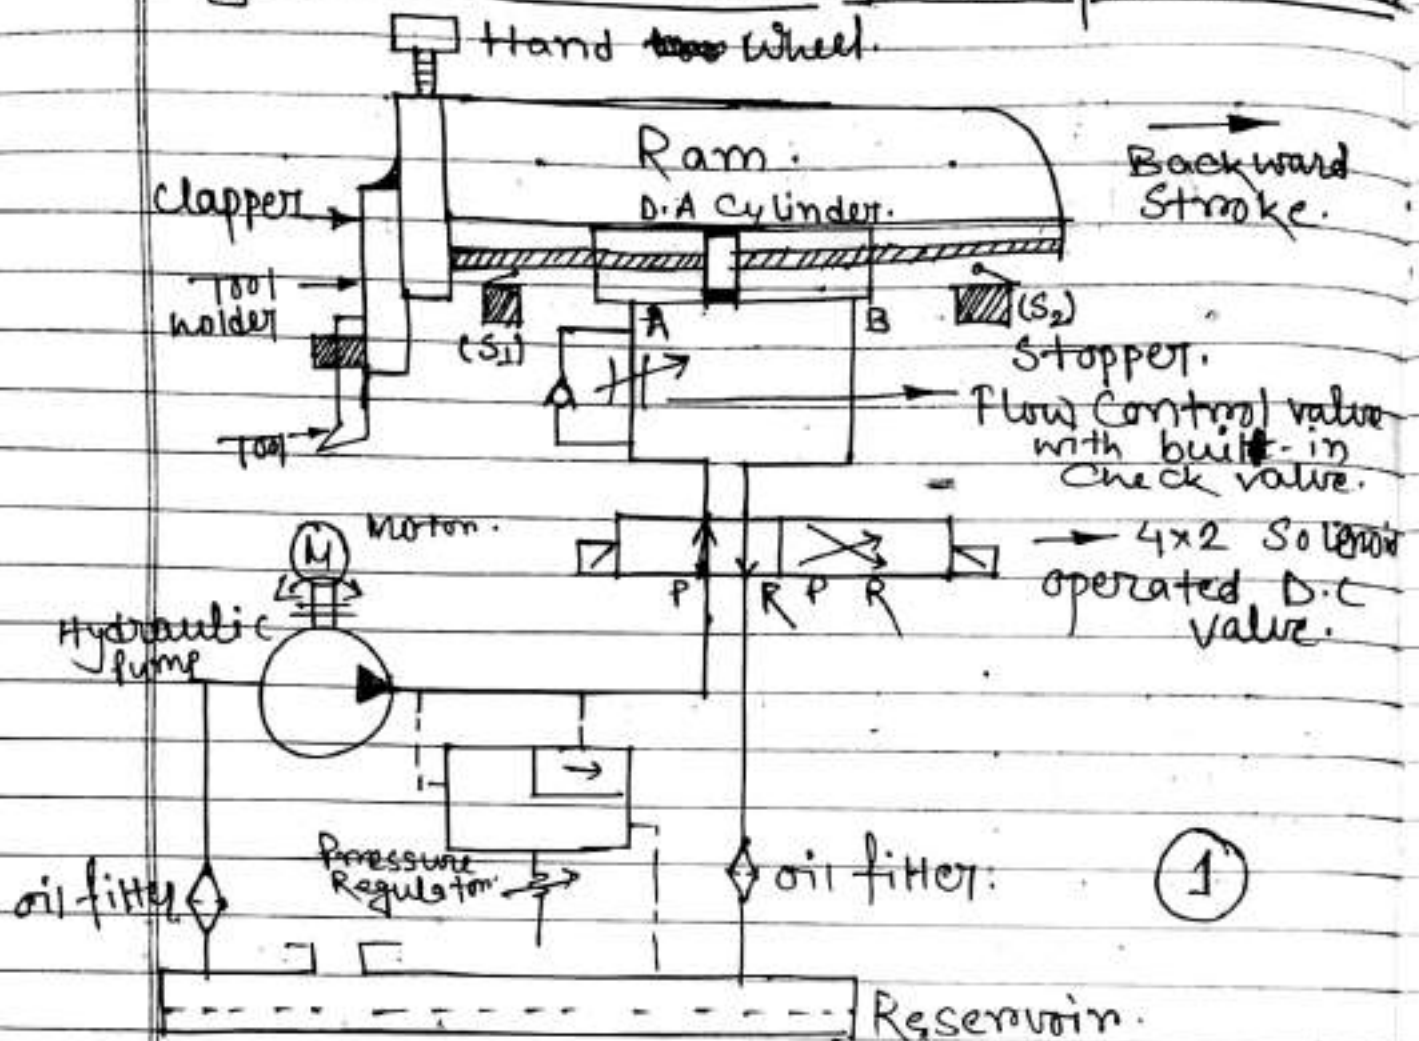 Hand Wheel.
Ram.
D.A Cylinder.
Backward
Stroke.
Clapper
Tool
holder
(S1)
A
B
(S2)
Stopper.
Flow Control valve
with built-in
Check valve.
Tool
Motor.
M
4x2 Solenoid
operated D.C
valve.
P R P R
Hydraulic
Pump
Pressure
Regulator.
oil filter
oil filter:
1
Reservoir.